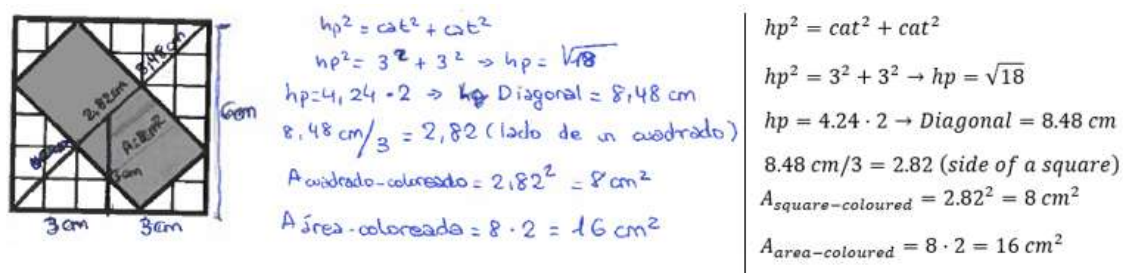 8,48cm
2,82cm
A=8cm²
3cm
6cm
3cm 3cm
hp² = cat² + cat²
hp² = 3² + 3² → hp = √18
hp=4,24·2 → Diagonal = 8,48 cm
8,48 cm/3 = 2,82 (lado de un cuadrado)
A cuadrado-coloreado = 2,82² = 8cm²
A área-coloreada = 8·2 = 16 cm²
hp² = cat² + cat²
hp² = 3² + 3² → hp = √18
hp = 4.24 · 2 → Diagonal = 8.48 cm
8.48 cm/3 = 2.82 (side of a square)
A square−coloured = 2.82² = 8 cm²
A area−coloured = 8 · 2 = 16 cm²